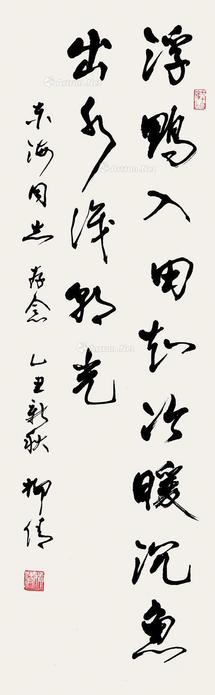 浮鸭入田知冷暖沉鱼
出水識朝光
东海同志存念 乙丑新秋 柳倩